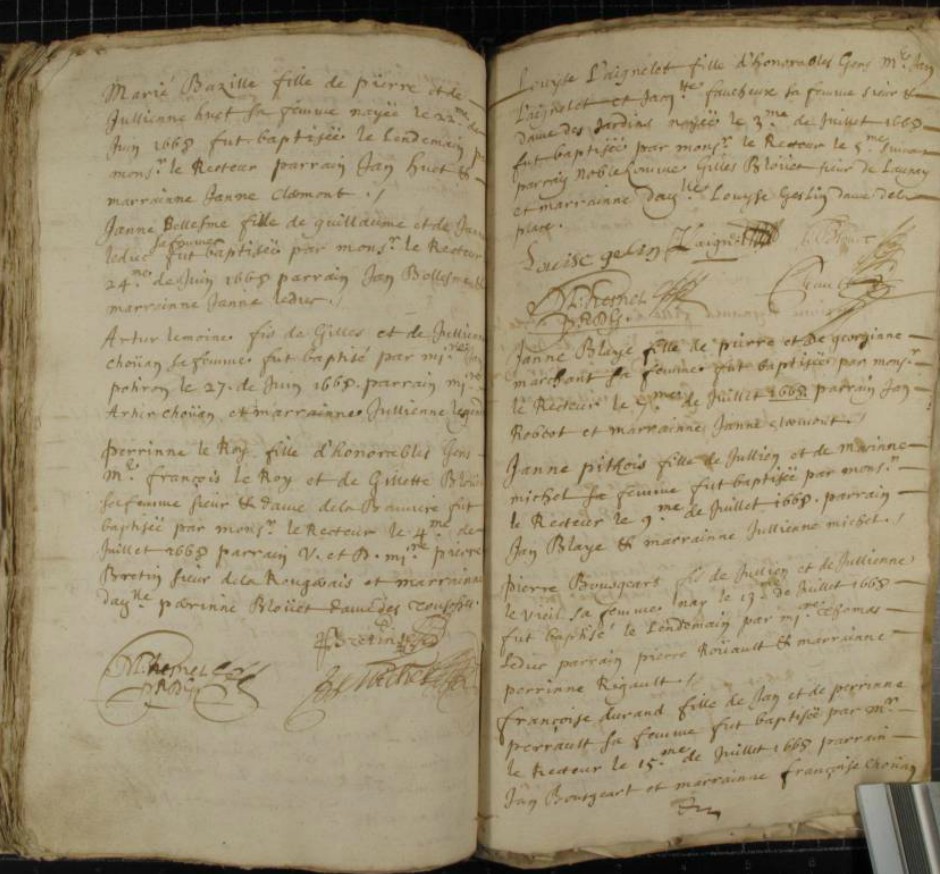 Marie Bazille fille de pierre et de
Jullienne huet sa femme nayée le 22.me de
Juin 1668 fut baptisée le Lendemain par
mons.r le Recteur parrain Jan huet &
marrainne Janne clemont ./
Janne Bellesme fille de guillaume et de Janne
leduc sa femme fut baptiseë par mons.r le Recteur
24.me de Juin 1668 parrain Jan Bellesme &
marrainne Janne leduc ./
Artur lemoine fis de Gilles et de Jullienne
choüan sa femme fut baptisé par mi.re Jan
potiron le 27. de Juin 1668. parrain mi.re
Artur choüan et marrainne Jullienne
perrinne le Roy fille d'honorables Gens
m.e françois le Roy et de Gillette Bloüet
sa femme sieur & dame de la fut
baptiseë par mons.r le Recteur le 4.me de
Juillet 1668 parrain V. et D. mi.re pierre
Bretin sieur de la et marrainne
day.lle perinne Bloüet dame des
P Bretin
Louyse L'aignelet fille d'honorables Gens m.e Jan
L'aignelet et Jacq.tte faucheuse sa femme sieur &
dame des Jardins nayeë le 3.me de Juillet 1668
fut baptiseë par mons.r le Recteur le 5.me suivant
parrain noble homme Gilles Bloüet sieur de Launay
et marrainne day.lle Louyse Geslin dame de la
place.
Louise geslin L'aignelet G. Bloüet
Janne Blaye fille de pierre et de georginne
marchant sa femme fut baptiseë par mons.r
le Recteur le 7.me de Juillet 1668 parrain Jan
Robcot et marrainne Janne clemont ./
Janne pithois fille de Jullien et de marinne
michel sa femme fut baptiseë par mons.r
le Recteur le 9.me de Juillet 1668. parrain
Jan Blaye & marrainne Jullienne michel ./
pierre Bourgeart fis de Jullien et de Jullienne
le vieil sa femme nay le 13.me de Juillet 1668
fut baptisé le Lendemain par mi.re Thomas
Leduc parrain pierre Rouault & marrainne
perrinne Rigault ./
françoise durand fille de Jan et de perrinne
perrault sa femme fut baptiseë par m.r
le Recteur le 15.me de Juillet 1668 parrain
Jan Bourgeart et marrainne françoise choüan